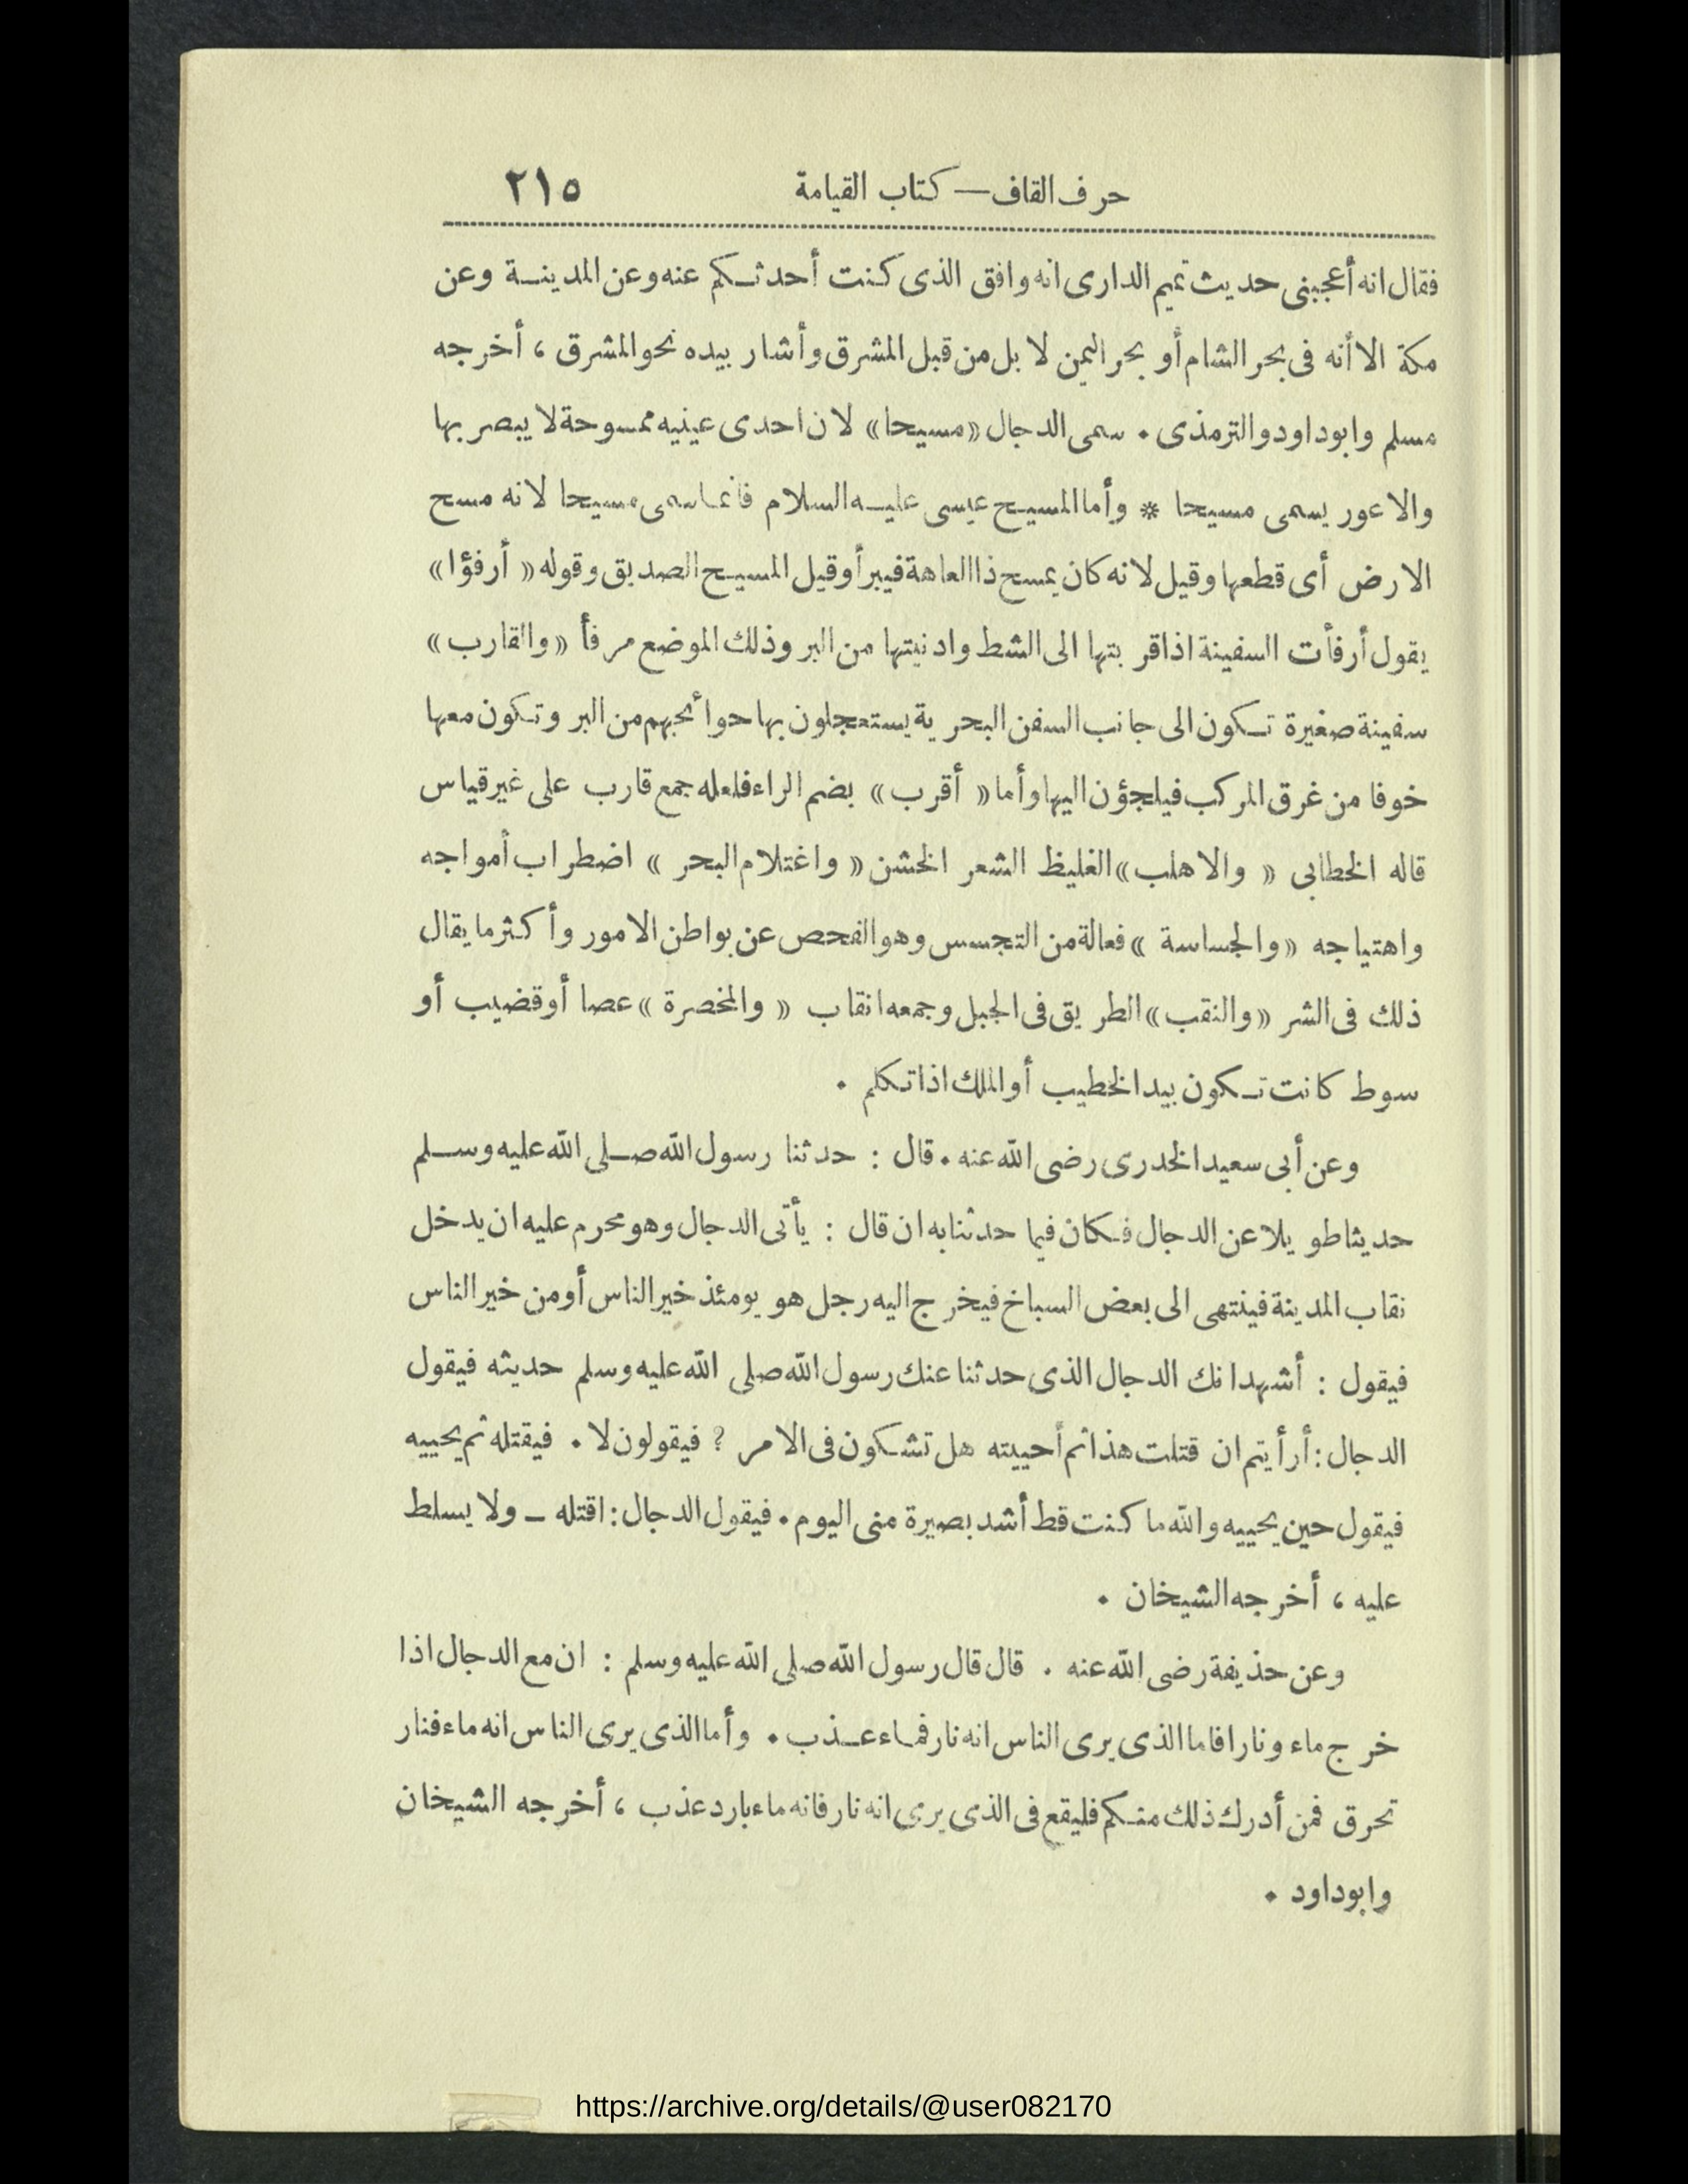 حرف القاف — كتاب القيامة ٢١٥
فقال انه أعجبنى حديث تميم الدارى انه وافق الذى كنت أحدثكم عنه وعن المدينة وعن
مكة الا أنه فى بحر الشام أو بحر اليمن لا بل من قبل المشرق وأشار بيده نحو المشرق ، أخرجه
مسلم وابوداود والترمذى . سمى الدجال «مسيحا» لان احدى عينيه ممسوحة لا يبصر بها
والاعور يسمى مسيحا * وأما المسيح عيسى عليه السلام فانما سمى مسيحا لانه مسح
الارض أى قطعها وقيل لانه كان يمسح ذا العاهة فيبرأ وقيل المسيح الصديق وقوله « أرفؤا»
يقول أرفأت السفينة اذا قربتها الى الشط وادنيتها من البر وذلك الموضع مرفأ «والقارب»
سفينة صغيرة تكون الى جانب السفن البحرية يستعجلون بها حوائجهم من البر وتكون معها
خوفا من غرق المركب فيلجؤن اليها وأما « أقرب» بضم الراء فلعله جمع قارب على غير قياس
قاله الخطابى « والاهلب» الغليظ الشعر الخشن « واغتلام البحر » اضطراب أمواجه
واهتياجه «والجساسة » فعالة من التجسس وهو الفحص عن بواطن الامور وأكثر ما يقال
ذلك فى الشر «والنقب» الطريق فى الجبل وجمعه انقاب « والمخصرة » عصا أو قضيب أو
سوط كانت تكون بيد الخطيب أو الملك اذا تكلم .
وعن أبى سعيد الخدرى رضى الله عنه . قال : حدثنا رسول الله صلى الله عليه وسلم
حديثا طويلا عن الدجال فكان فيما حدثنا به ان قال : يأتى الدجال وهو محرم عليه ان يدخل
نقاب المدينة فينتهى الى بعض السباخ فيخرج اليه رجل هو يومئذ خير الناس أو من خير الناس
فيقول : أشهد انك الدجال الذى حدثنا عنك رسول الله صلى الله عليه وسلم حديثه فيقول
الدجال : أرأيتم ان قتلت هذا ثم أحييته هل تشكون فى الامر ? فيقولون لا . فيقتله ثم يحييه
فيقول حين يحييه والله ما كنت قط أشد بصيرة منى اليوم . فيقول الدجال : اقتله ـ ولا يسلط
عليه ، أخرجه الشيخان .
وعن حذيفة رضى الله عنه . قال قال رسول الله صلى الله عليه وسلم : ان مع الدجال اذا
خرج ماء ونارا فاما الذى يرى الناس انه نار فماء عذب . وأما الذى يرى الناس انه ماء فنار
تحرق فمن أدرك ذلك منكم فليقع فى الذى يرى انه نار فانه ماء بارد عذب ، أخرجه الشيخان
وابوداود .
https://archive.org/details/@user082170